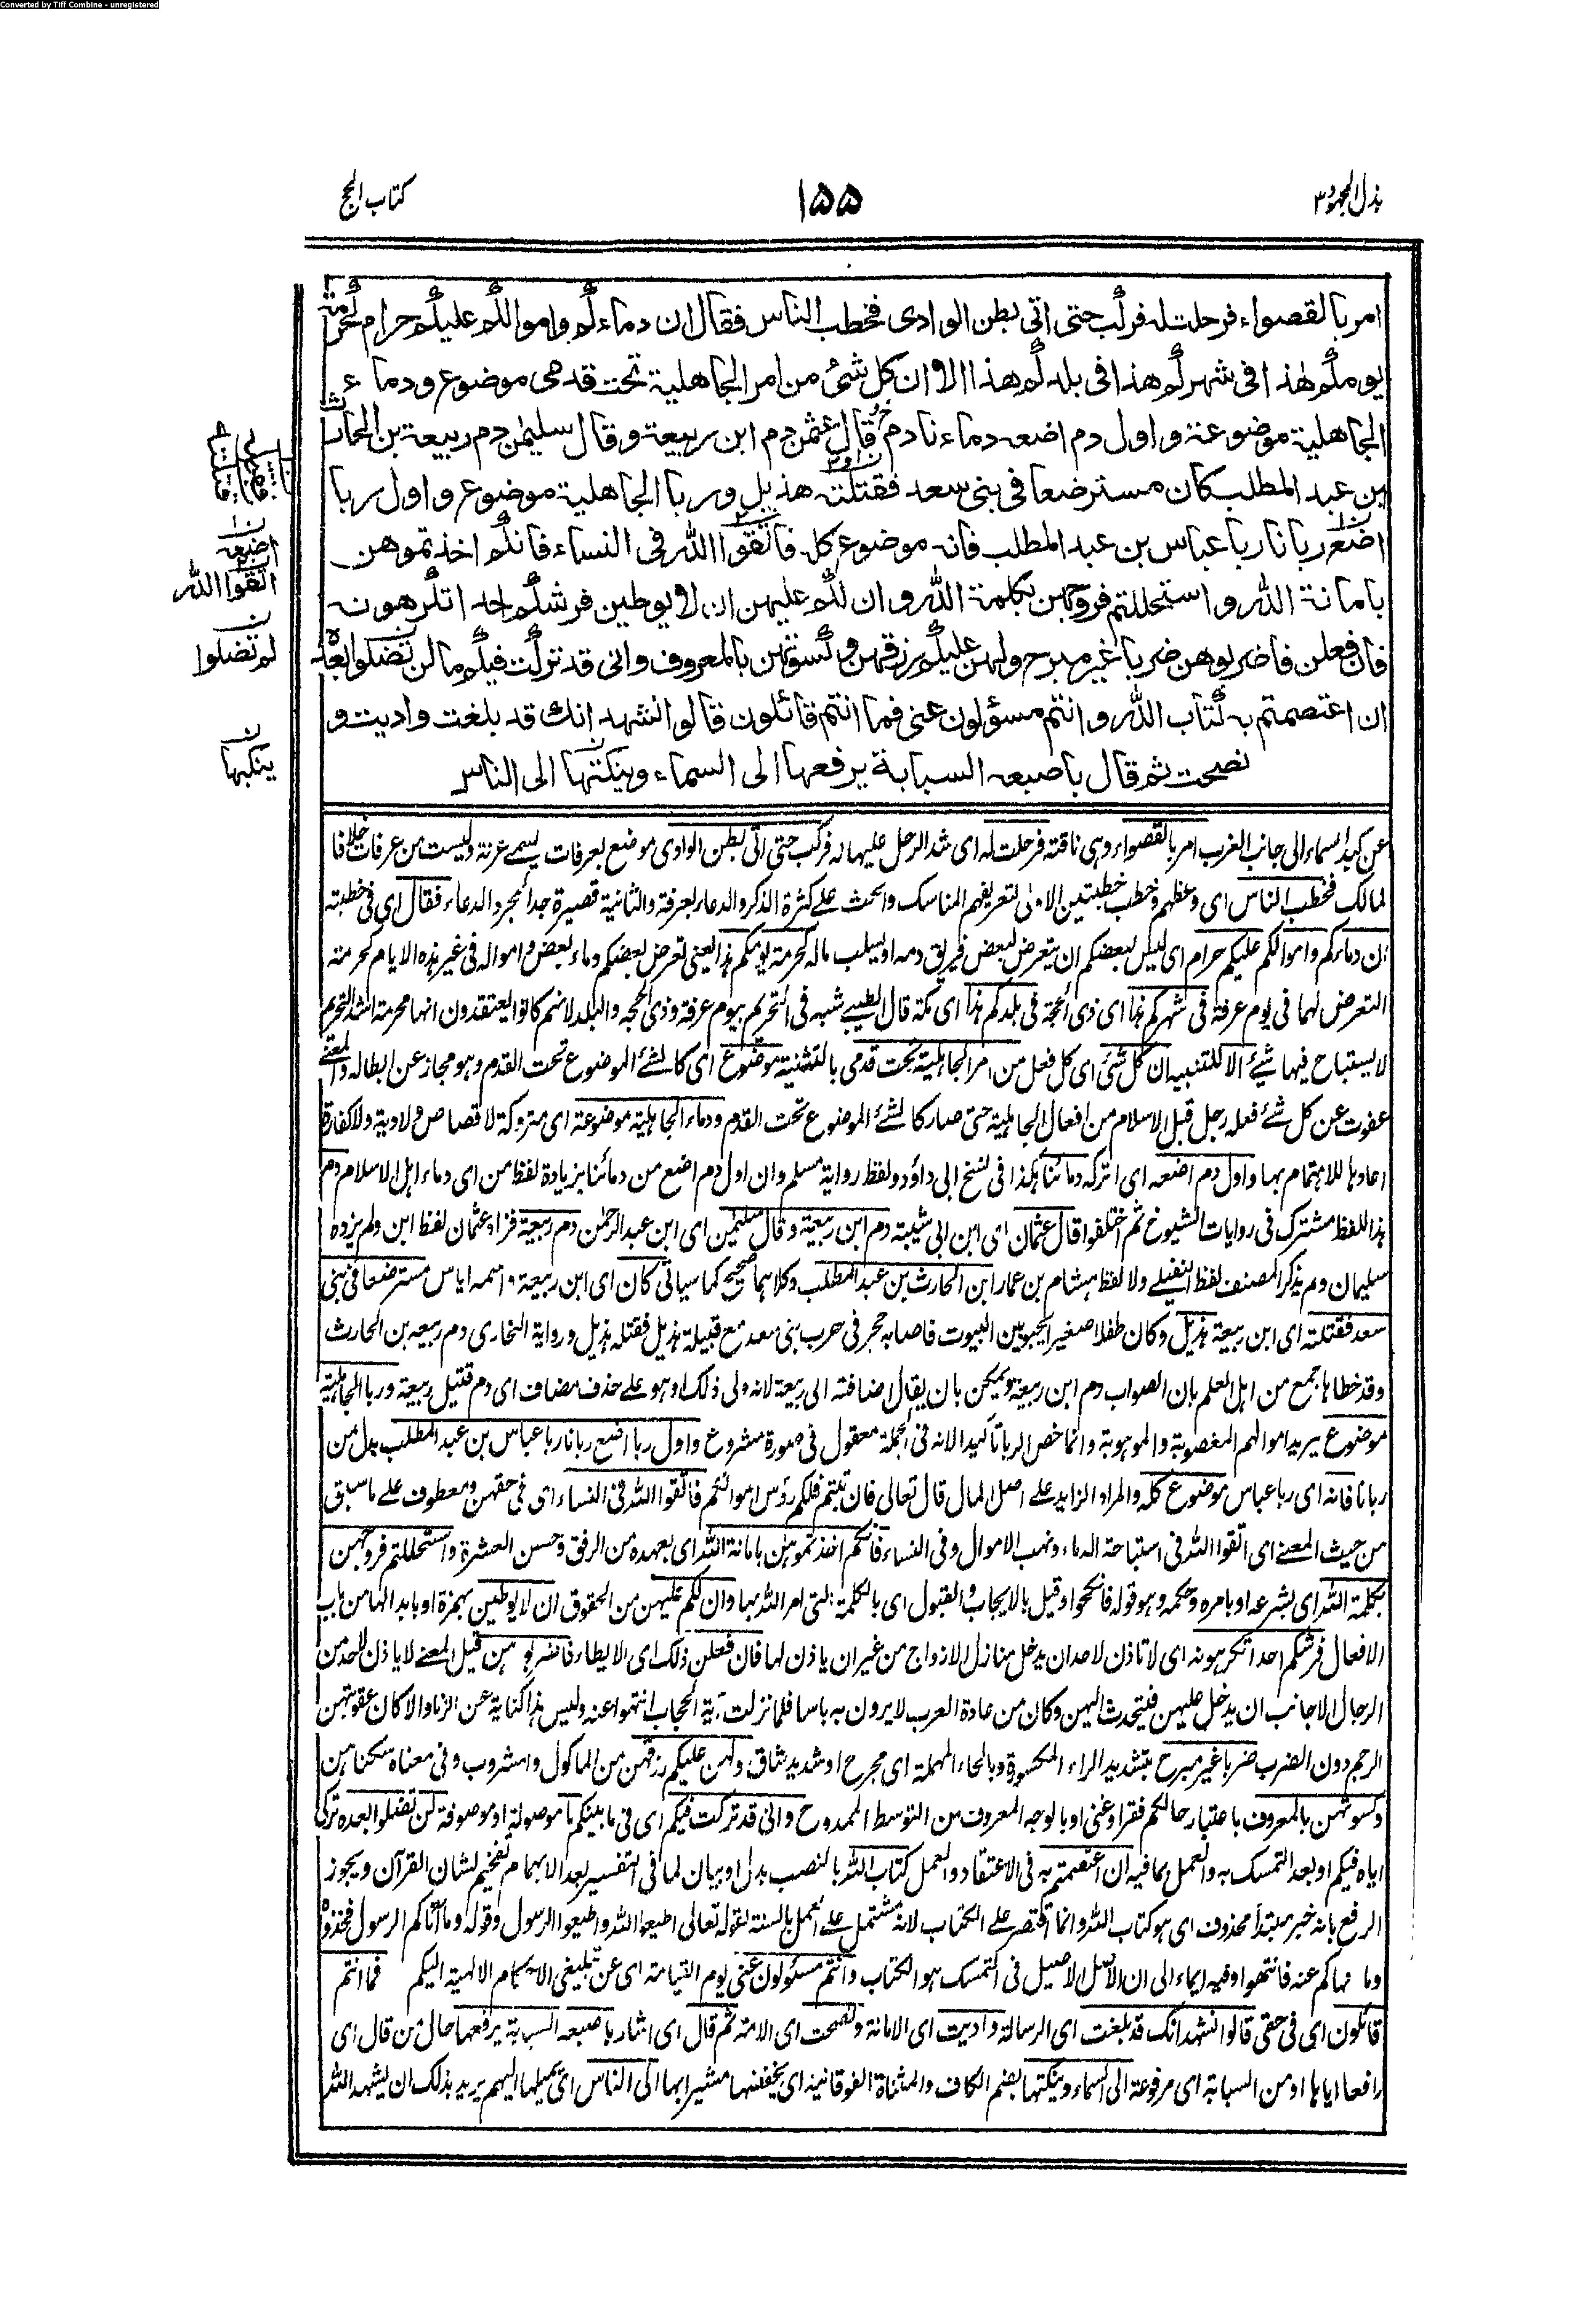 Converted by Tiff Combine - unregistered
بذل المجهود ٣
١٥٥
كتاب الحج
امر بالقصواء فرحلت له فركب حتى اتى بطن الوادى فخطب الناس فقال ان دماءكم واموالكم عليكم حرام كحرمة
يومكم هذا فى شهركم هذا فى بلدكم هذا الا ان كل شئ من امر الجاهلية تحت قدمى موضوع ودماء
الجاهلية موضوعة واول دم اضعه دماءنا دم قال عثمن دم ابن ربيعة وقال سليمن دم ربيعة بن الحارث
بن عبد المطلب كان مسترضعا فى بنى سعد فقتلته هذيل وربا الجاهلية موضوع واول ربا
اضع ربانا ربا عباس بن عبد المطلب فانه موضوع كل فاتقوا الله فى النساء فانكم اخذتموهن
بامانة الله واستحللتم فروجهن بكلمة الله وان لكم عليهن ان لا يوطين فرشكم احدا تكرهونه
فان فعلن فاضربوهن ضربا غير مبرح ولهن عليكم رزقهن وكسوتهن بالمعروف وانى قد تركت فيكم ما لن تضلوا بعده
ان اعتصمتم به كتاب الله وانتم مسؤلون عنى فما انتم قائلون قالوا نشهد انك قد بلغت واديت و
نصحت ثم قال باصبعه السبابة يرفعها الى السماء وينكتها الى الناس
اضعه
اتقوا الله
ن
لم تضلوا
ن
ينكبها
عن كبد السماء الى جانب الغرب امر بالقصواء وهى ناقته فرحلت له اى شد الرحل عليها له فركب حتى اتى بطن الوادى موضع بعرفات يسمے عرنة وليست من عرفات خلافا
لمالك فخطب الناس اى وعظهم وخطب خطبتين الاولى لتعريفهم المناسك والحث علے كثرة الذكر والدعاء بعرفة والثانية قصيرة جدا لمجرد الدعاء فقال اى فى خطبته
ان دماءكم واموالكم عليكم حرام اى ليس لبعضكم ان يتعرض لبعض فيريق دمه او يسلب ماله كحرمة يومكم هذا يعنى تعرض بعضكم دماء بعض وامواله فى غير هذه الايام كحرمة
التعرض لهما فى يوم عرفة فى شهركم هذا اى ذى الحجة فى بلدكم هذا اى مكة قال الطيبے شبه فى التحريم بيوم عرفة وذى الحجه والبلد لانهم كانوا يعتقدون انها محرمة اشد التحريم
لا يستباح فيها شئ الا للتنبيه ان كل شئ اى كل فعل من امر الجاهلية تحت قدمى بالتثنية موضوع اى كالشئ الموضوع تحت القدم وهو مجاز عن ابطاله والمعنے
عفوت عن كل شئ فعله رجل قبل الاسلام من افعال الجاهلية حتى صار كالشئ الموضوع تحت القدم ودماء الجاهلية موضوعة اى متروكة لا قصاص ولا دية ولا كفارة
اعادها للاهتمام بها واول دم اضعه اى اتركه دمائنا هكذا فى نسخ ابى داؤد ولفظ رواية مسلم وان اول دم اضع من دمائنا بزيادة لفظ من اى دماء اهل الاسلام دم
هذا للفظ مشترك فى روايات الشيوخ ثم اختلفوا قال عثمان اى ابن ابى شيبة دم ابن ربيعة وقال سليمن اى ابن عبد الرحمن دم ربيعة فزاد عثمان لفظ ابن ولم يزده
سليمان ولم يذكر المصنف لفظ النفيلے ولا لفظ هشام بن عمار ابن الحارث بن عبد المطلب وكلاهما صحيح كما سياتى كان اى ابن ربيعة واسمه اياس مسترضعا فى بنى
سعد فقتلته اى ابن ربيعة هذيل وكان طفلا صغيرا يحبو بين البيوت فاصابه حجر فى حرب بنى سعد مع قبيلة هذيل فقتله هذيل ورواية البخارى دم ربيعه بن الحارث
وقد خطأها جمع من اهل العلم بان الصواب دم ابن ربيعة ويمكن بان يقال اضافته الى ربيعة لانه ولى ذلك او هو علے حذف مضاف اى دم قتيل ربيعة وربا الجاهلية
موضوع يريد اموالهم المغصوبة والموهوبة وانما خص الربا تاكيدا لانه فى الجملة معقول فى صورة مشروع واول ربا اضع ربانا ربا عباس بن عبد المطلب بدل من
ربانا فانه اى ربا عباس موضوع كله والمراد الزايد علے اصل المال قال تعالى فان تبتم فلكم رؤس اموالكم فاتقوا الله فى النساء اى فى حقهن ومعطوف علے ما سبق
من حيث المعنے اى اتقوا الله فى استباحة الدماء ونهب الاموال وفى النساء فانكم اخذتموهن بامانة الله اى بعهده من الرفق وحسن العشرة واستحللتم فروجهن
بكلمة الله اى بشرعه او بامره وحكمه وهو قوله فانكحوا وقيل بالايجاب والقبول اى بالكلمة التى امر الله بها وان لكم عليهن من الحقوق ان لا يوطين بهمزة او بابدالها من باب
الافعال فرشكم احدا تكرهونه اى لا تاذن لاحد ان يدخل منازل الازواج من غير ان ياذن لها فان فعلن ذلك اى الايطاء فاضربوهن قيل المعنے لا ياذن لاحد من
الرجال الاجانب ان يدخل عليهن فيتحدث اليهن وكان من عادة العرب لا يرون به باسا فلما نزلت آية الحجاب انتهوا عنه وليس هذا كناية عن الزنا والا كان عقوبتهن
الرجم دون الضرب ضربا غير مبرح بتشديد الراء المكسورة وبالحاء المهملة اى مجرح او شديد شاق ولهن عليكم رزقهن من الماكول والمشروب وفى معناه سكناهن
وكسوتهن بالمعروف باعتبار حالكم فقرا وغنى او بالوجه المعروف من التوسط الممدوح وانى قد تركت فيكم اى فى ما بينكم ما موصولة او موصوفة لن تضلوا بعده تركى
اياه فيكم او بعد التمسك به والعمل بما فيه ان اعتصمتم به فى الاعتقاد والعمل كتاب الله بالنصب بدل او بيان لما فى التفسير بعد الابهام تفخيم لشان القرآن ويجوز
الرفع بانه خبر مبتدأ محذوف اى هو كتاب الله وانما اقتصر علے الكتاب لانه مشتمل علے العمل بالسنة لقوله تعالى اطيعوا الله واطيعوا الرسول وقوله وما آتاكم الرسول فخذوه
وما نهاكم عنه فانتهوا وفيه ايماء الى ان الاصل الاصيل فى التمسك هو الكتاب وانتم مسئولون عنى يوم القيامة اى عن تبليغى الاحكام الالهية اليكم فما انتم
قائلون اى فى حقى قالوا نشهد انك قد بلغت اى الرسالة واديت اى الامانة ونصحت اى الامة ثم قال اى اشار باصبعه السبابة يرفعها حال من قال اى
رافعا اياها او من السبابة اى مرفوعة الى السماء وينكتها بضم الكاف والمثناة الفوقانية اى يخفضها مشيرا بها الى الناس اى يميلها اليهم يريد بذلك ان يشهد الله